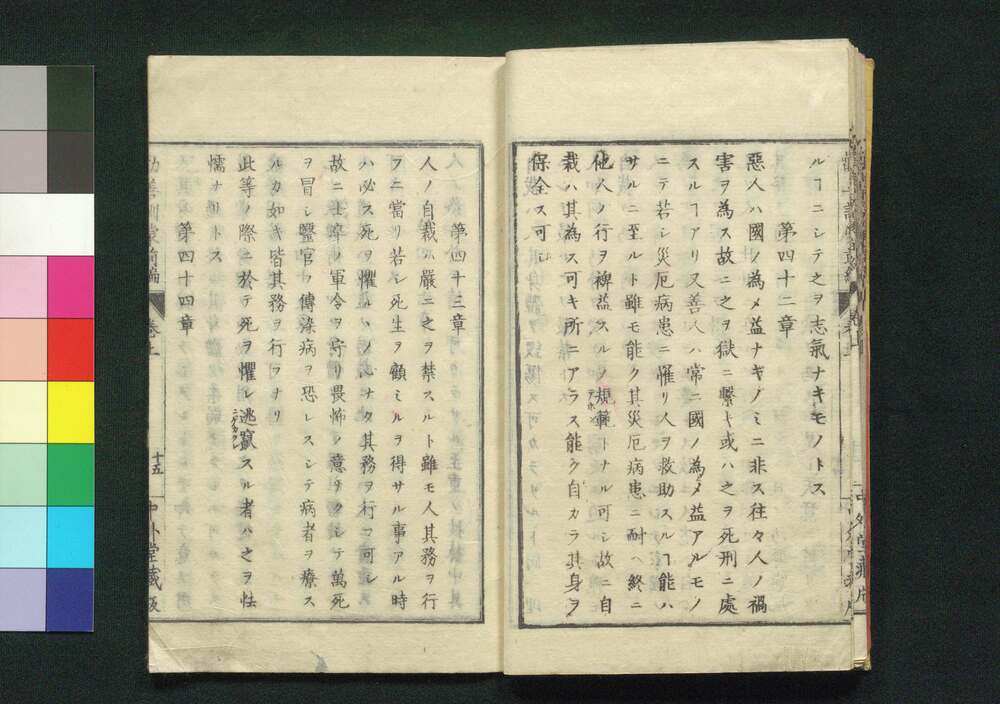 ルヿニシテ之ヲ志氣ナキモノトス
第四十二章
惡人ハ國ノ為メ益ナキノミニ非ス往々人ノ禍
害ヲ為ス故ニ之ヲ獄ニ繋キ或ハ之ヲ死刑ニ處
スルヿアリ又善人ハ常ニ國ノ為メ益アルモノ
ニテ若シ災厄病患ニ罹リ人ヲ救助スルヿ能ハ
サルニ至ルト雖モ能ク其災厄病患ニ耐ヘ終ニ
他人ノ行ヲ裨益スルノ規範トナル可シ故ニ自
裁ハ其為ス可キ所ニアラス能ク自カラ其身ヲ
保全ス可シ
第四十三章
人ノ自裁ハ嚴ニ之ヲ禁スルト雖モ人其務ヲ行
フニ當リ若シ死生ヲ顧ミルヲ得サル事アル時
ハ必ス死ヲ懼ルヽノ心ナク其務ヲ行フ可シ
故ニ士卒ノ軍令ヲ守リ畏怖ノ意ナクシテ萬死
ヲ冒シ醫官ノ傳染病ヲ恐レスシテ病者ヲ療ス
ルカ如キ皆其務ヲ行フナリ
此等ノ際ニ於テ死ヲ懼レ逃竄スル者ハ之ヲ怯
懦ナリトス
第四十四章
卷上
十五
中外堂藏版